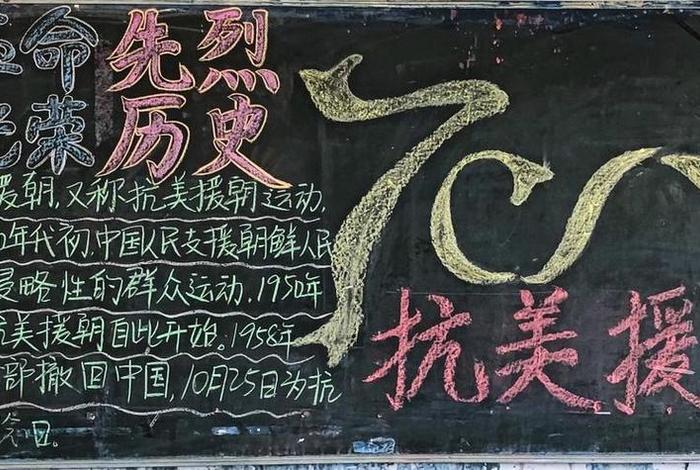 革命先烈
光荣历史
援朝,又称抗美援朝运动,
0年代初,中国人民支援朝鲜人民
侵略性的群众运动,1950年
抗美援朝自此开始。1958年
部撤回中国,10月25日为抗
念日。
70
抗美援